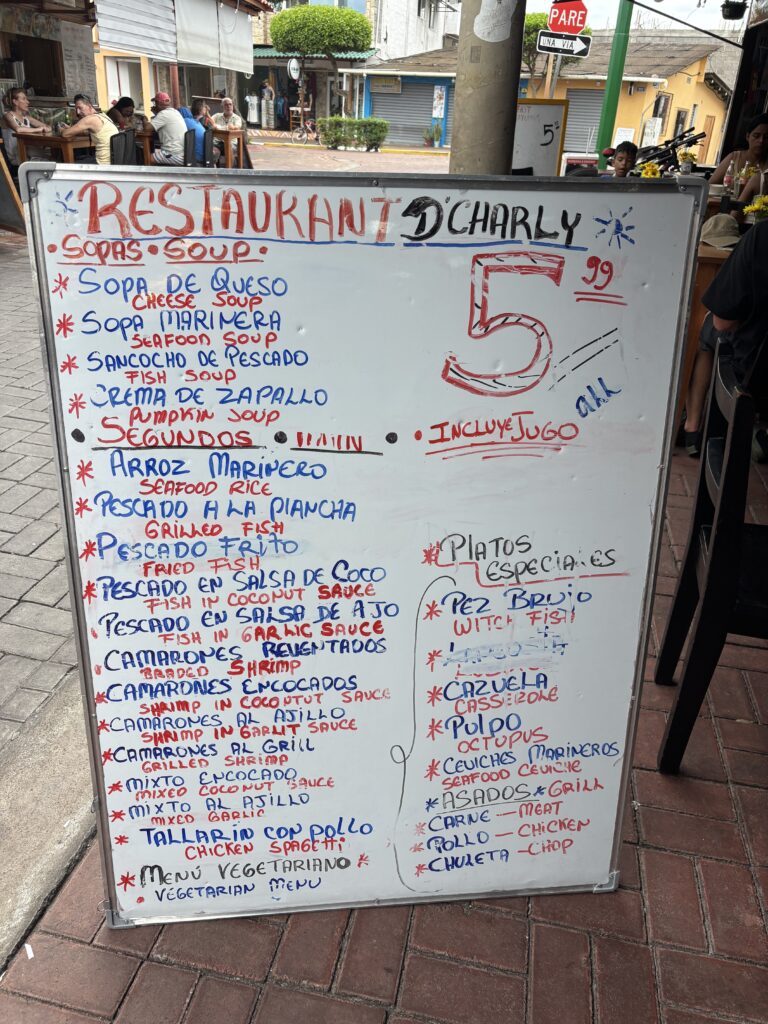 PARE
UNA VIA
5
RESTAURANT D'CHARLY
• SOPAS • SOUP •
* SOPA DE QUESO
CHEESE SOUP
* SOPA MARINERA
SEAFOOD SOUP
* SANCOCHO DE PESCADO
FISH SOUP
* CREMA DE ZAPALLO
PUMPKIN SOUP
• SEGUNDOS • MAIN •
* ARROZ MARINERO
SEAFOOD RICE
* PESCADO A LA PLANCHA
GRILLED FISH
* PESCADO FRITO
FRIED FISH
* PESCADO EN SALSA DE COCO
FISH IN COCONUT SAUCE
• PESCADO EN SALSA DE AJO
FISH IN GARLIC SAUCE
• CAMARONES REVENTADOS
BRADED SHRIMP
* CAMARONES ENCOCADOS
SHRIMP IN COCONTUT SAUCE
* CAMARONES AL AJILLO
SHRIMP IN GARLIT SAUCE
* CAMARONES AL GRILL
GRILLED SHRIMP
* MIXTO ENCOCADO
MIXED COCONUT SAUCE
* MIXTO AL AJILLO
MIXED GARLIC
* TALLARIN CON POLLO
CHICKEN SPAGETTI
* MENÚ VEGETARIANO *
• VEGETARIAN MENU
5 99
• INCLUYE JUGO
* PLATOS
ESPECIALES
* PEZ BRUJO
WITCH FISH
* CAZUELA
CASSEROLE
* PULPO
OCTUPUS
* CEVICHES MARINEROS
SEAFOOD CEVICHE
* ASADOS * GRILL
* CARNE — MEAT
* POLLO — CHICKEN
* CHULETA — CHOP